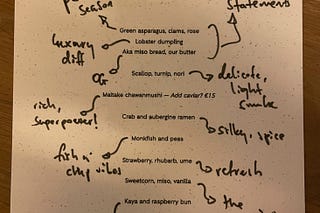 season
statements
Green asparagus, clams, rose
luxury
diff
Lobster dumpling
Aka miso bread, our butter
OG
Scallop, turnip, nori
delicate,
light
smoke
Maitake chawanmushi — Add caviar? €15
rich,
superpower!
Crab and aubergine ramen
silky, spice
Monkfish and peas
fish n'
chip vibes
Strawberry, rhubarb, ume
refresh
Sweetcorn, miso, vanilla
the
Kaya and raspberry bun